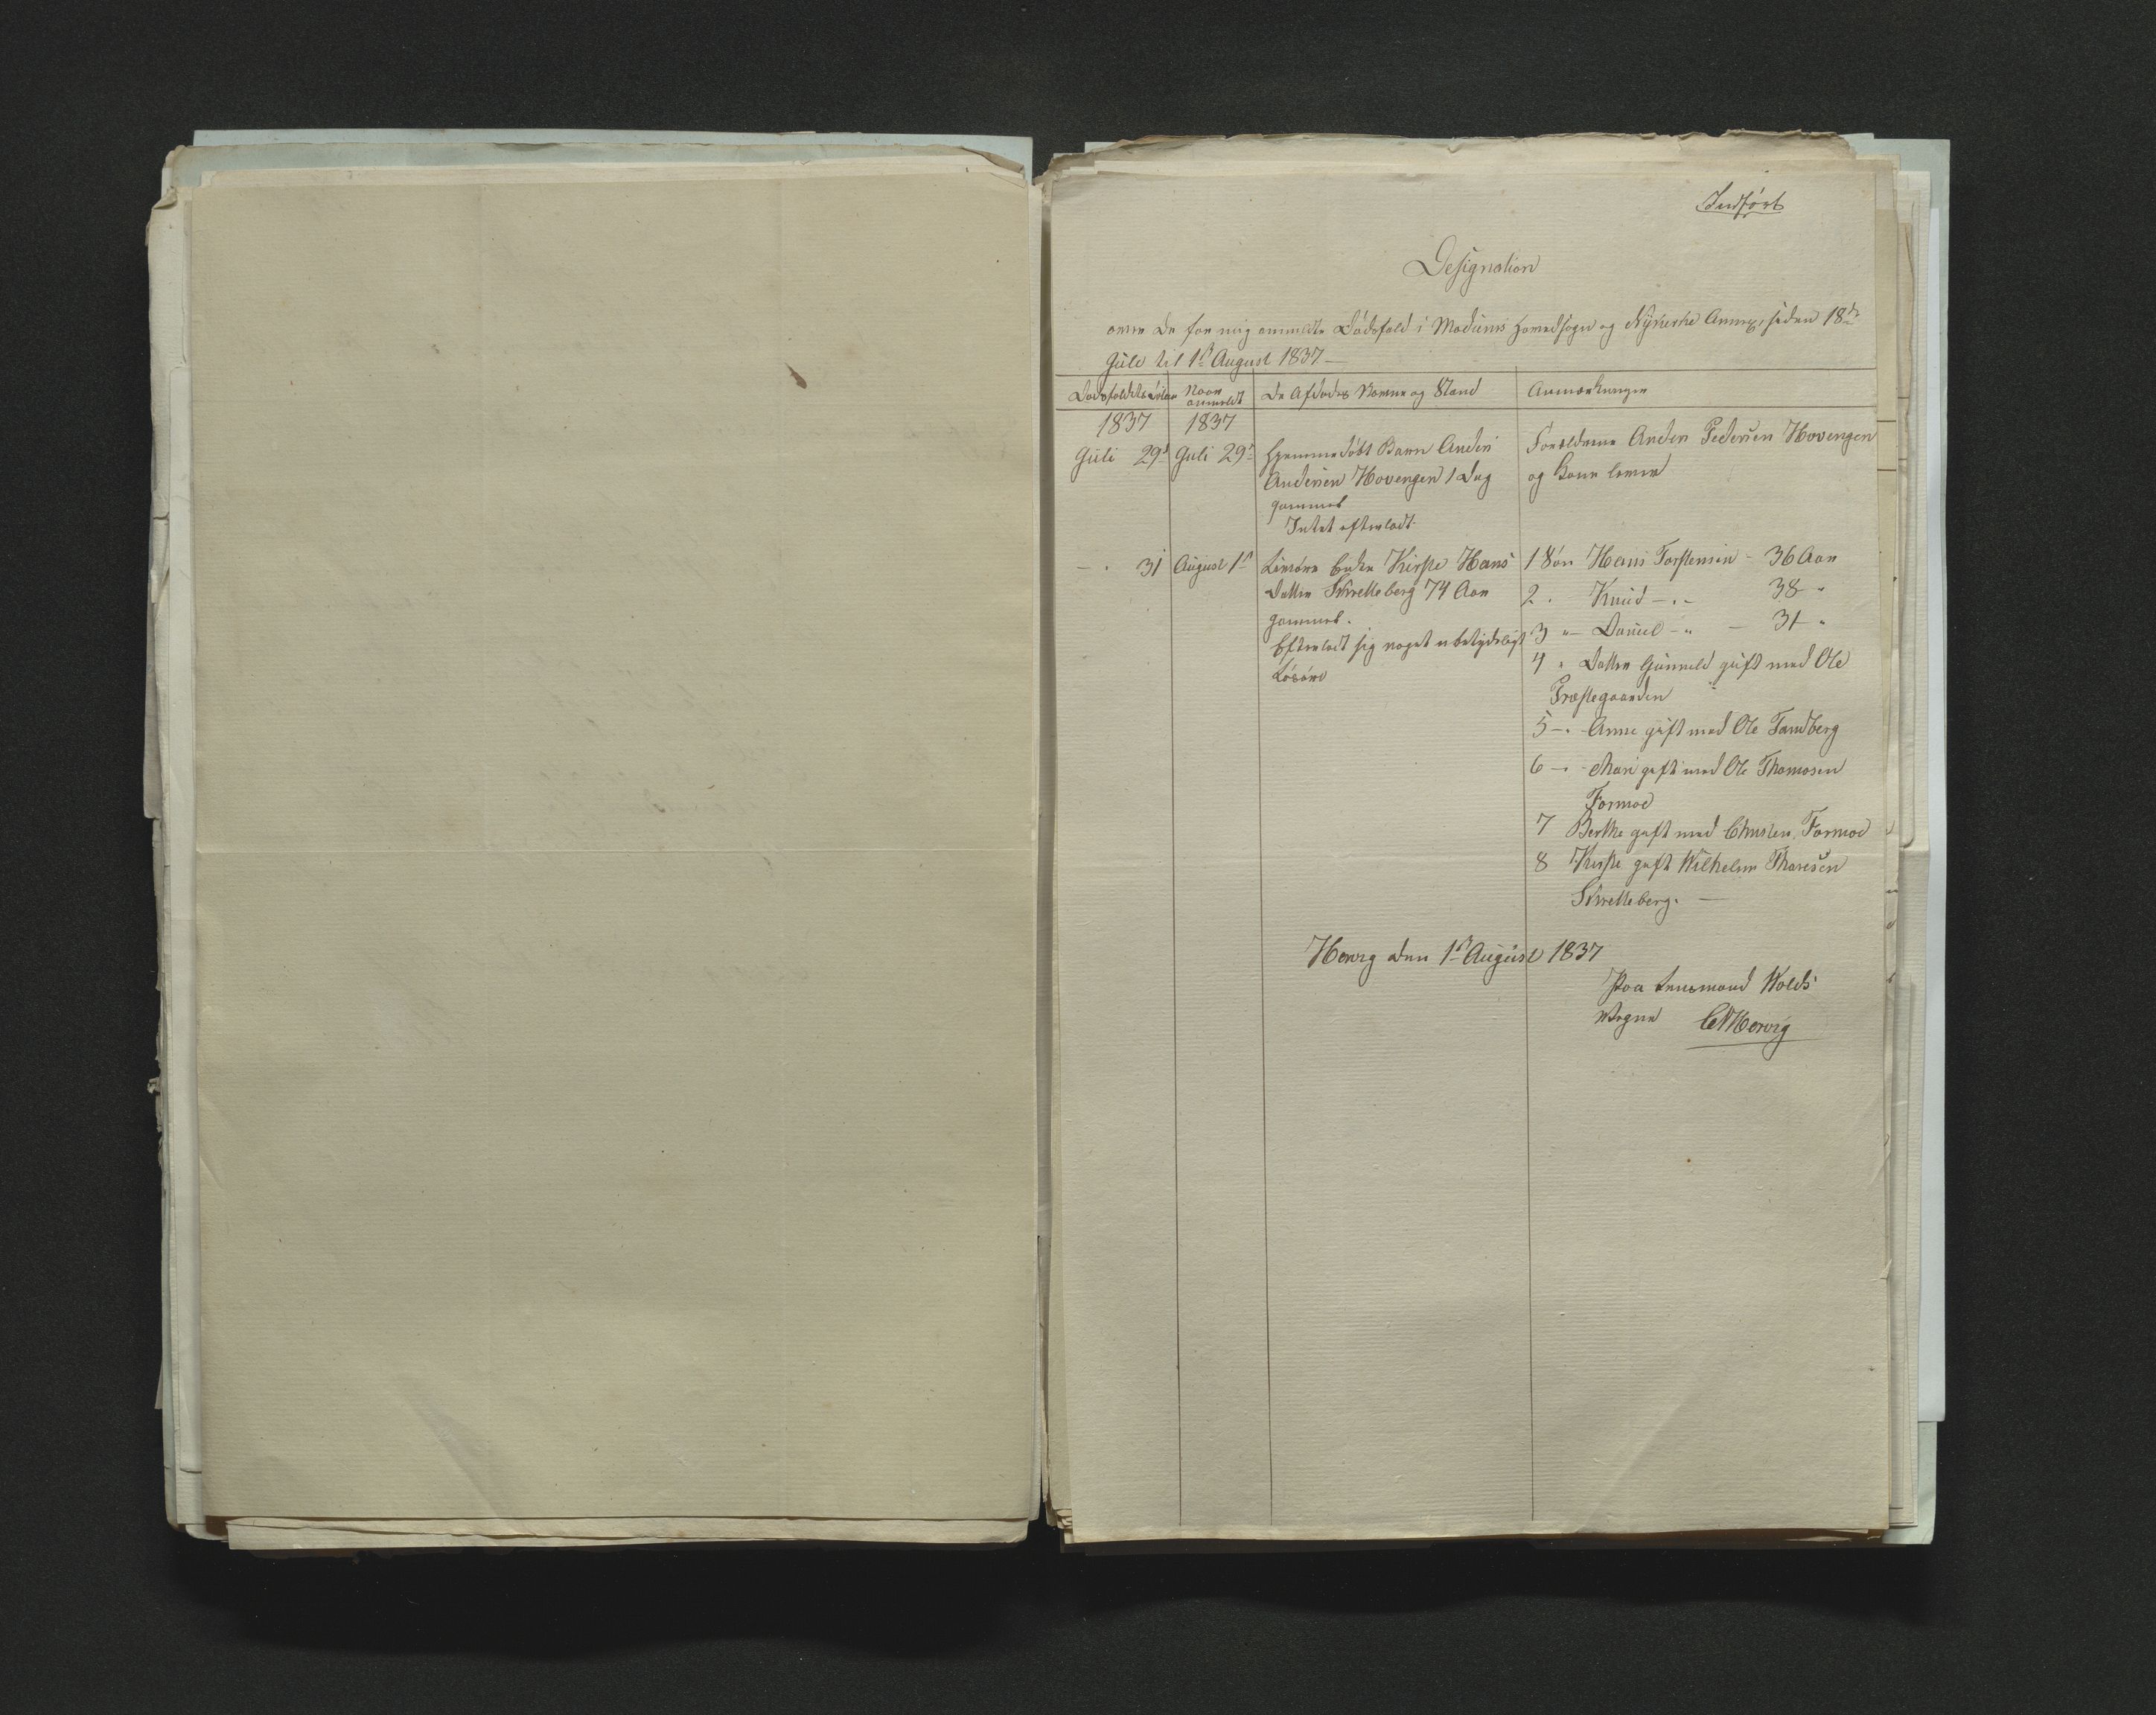 Indført
Designation
over De for mig anmeldte Dødsfald i Modums Hovedsogn og Nykirke Annex, siden 18de
Juli til 1ste August 1837
Dødsfaldets Datum
Naar anmeldt
De Afdødes Navne og Stand
Anmærkninger
1837 1837
Juli 29de Juli 29de Hjemmedøbt Barn Anders
Andersen Hovengen 1 Dag
gammel
Intet efterladt
Forældrene Anders Pedersen Hovengen
og Kone lever
- " 31 August 1ste Enke Kirste Hans
Datter Skretteberg 74 Aar
gammel.
Efterladt sig noget ubetydeligt
Løsøre
1 Søn Hans Torstensen - 36 Aar
2 " Knud - " - 38 "
3 " - Daniel - " - 31 "
4 " Datter Gunnild gift med Ole
Præstegaarden
5 - " - Anne gift med Ole Tandberg
6 - " - Mari gift med Ole Thomasen
Formoe
7 Berthe gift med Christen Formoe
8 Kirste gift Wilhelm Thoresen
Skretteberg. -
Hervig den 1ste August 1837
Paa Lensmand Wolds
Vegne Hervig